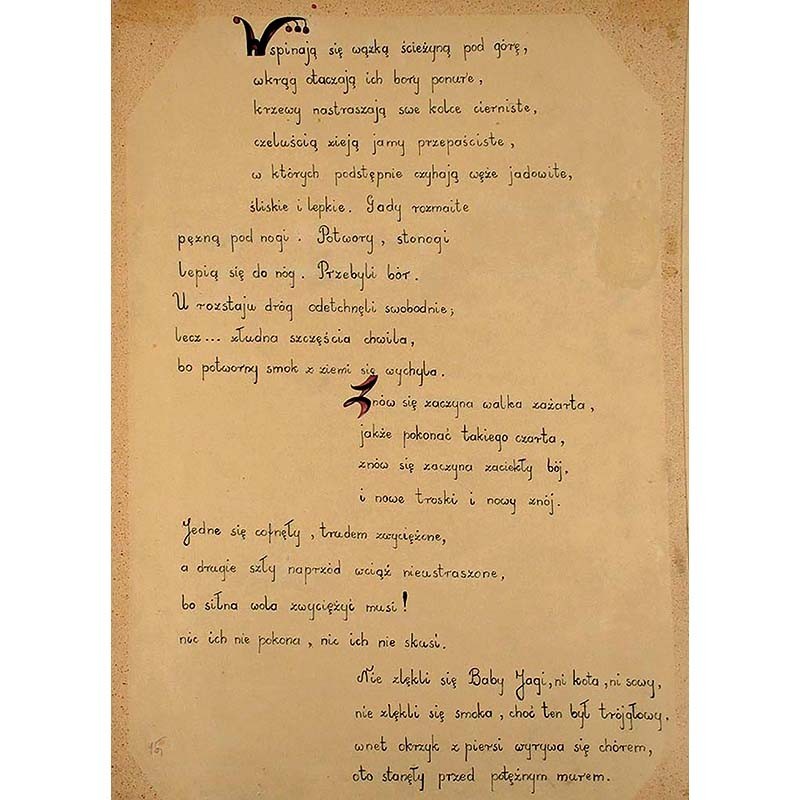 Wspinają się wązką ścieżyną pod górę,
wkrąg otaczają ich bory ponure,
krzewy nastraszają swe kolce cierniste,
czeluścią zieją jamy przepaściste,
w których podstępnie czyhają węże jadowite,
śliskie i lepkie. Gady rozmaite
pęzną pod nogi. Potwory, stonogi
lepią się do nóg. Przebyli bór.
U rozstaju dróg odetchnęli swobodnie;
lecz... złudna szczęścia chwila,
bo potworny smok z ziemi się wychyla.
Znów się zaczyna walka zażarta,
jakże pokonać takiego czarta,
znów się zaczyna zaciekły bój,
i nowe troski i nowy znój.
Jedne się cofnęły, trudem zwyciężone,
a drugie szły naprzód wciąż nieustraszone,
bo silna wola zwyciężyć musi!
nic ich nie pokona, nic ich nie skusi.
Nie zlękli się Baby Jagi, ni kota, ni sowy,
nie zlękli się smoka, choć ten był trójgłowy.
wnet okrzyk z piersi wyrywa się chórem,
oto stanęły przed potężnym murem.